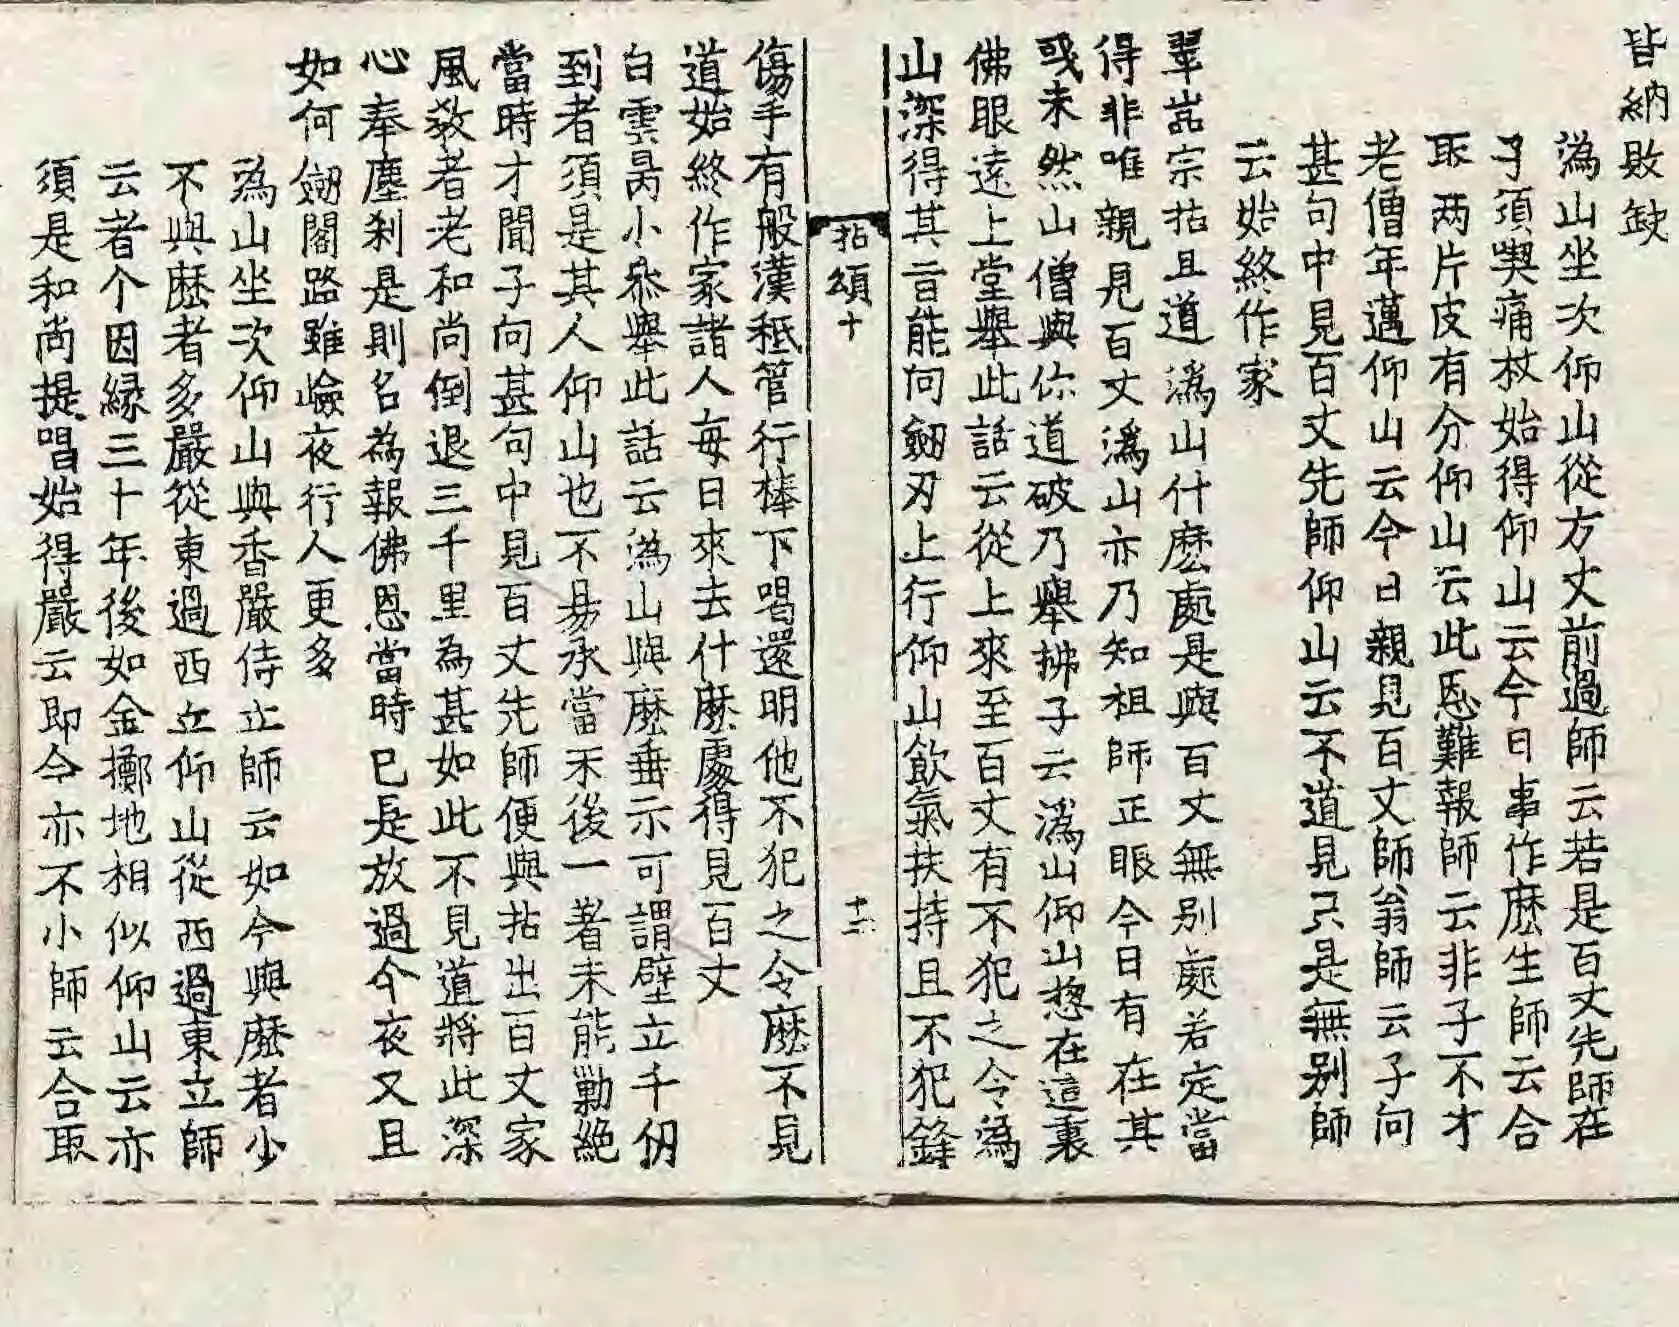 皆納敗缺
溈山坐次仰山從方丈前過師云若是百丈先師在
子須喫痛杖始得仰山云今日事作麽生師云合
取兩片皮有分仰山云此恩難報師云非子不才
老僧年邁仰山云今日親見百丈師翁師云子向
甚句中見百丈先師仰山云不道見只是無別師
云始終作家
翠嵓宗拈且道溈山什麽處是與百丈無別處若定當
得非唯親見百丈溈山亦乃知祖師正眼今日有在其
或未然山僧與你道破乃舉拂子云溈山仰山惣在這裏
佛眼遠上堂舉此話云從上來至百丈有不犯之令溈
山深得其旨能向劒刃上行仰山飲氣扶持且不犯鋒
拈頌十 十二
傷手有般漢秪管行棒下喝還明他不犯之令麽不見
道始終作家諸人每日來去什麽處得見百丈
白雲昺小叅舉此話云溈山與麽垂示可謂壁立千仞
到者須是其人仰山也不易承當末後一著未能勦絶
當時才聞子向甚句中見百丈先師便與拈出百丈家
風教者老和尚倒退三千里為甚如此不見道將此深
心奉塵刹是則名為報佛恩當時已是放過今夜又且
如何劒閣路雖嶮夜行人更多
溈山坐次仰山與香嚴侍立師云如今與麽者少
不與麽者多嚴從東過西立仰山從西過東立師
云者个因縁三十年後如金擲地相似仰山云亦
須是和尚提唱始得嚴云即今亦不小師云合取